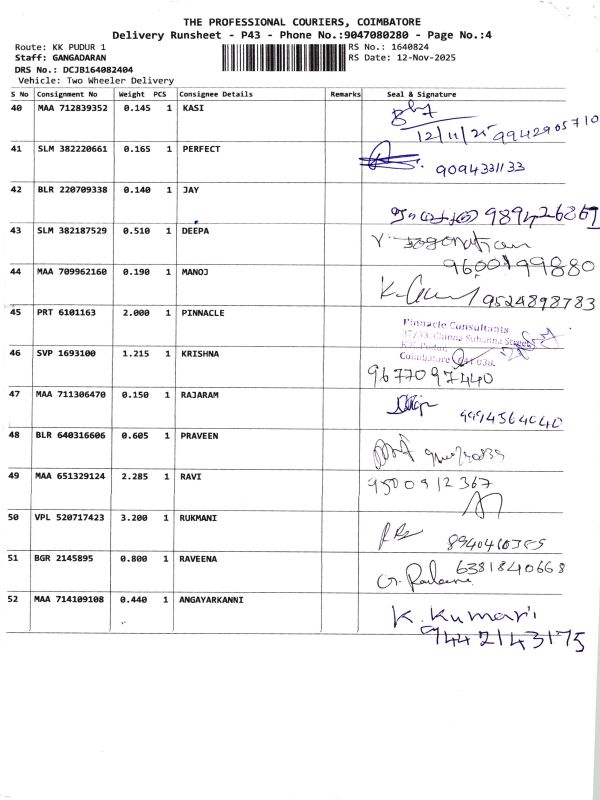 THE PROFESSIONAL COURIERS, COIMBATORE
Delivery Runsheet - P43 - Phone No.:9047080280 - Page No.:4
Route: KK PUDUR 1
RS No.: 1640824
Staff: GANGADARAN
RS Date: 12-Nov-2025
DRS No.: DCJB164082404
Vehicle: Two Wheeler Delivery
S No Consignment No Weight PCS Consignee Details Remarks Seal & Signature
40 MAA 712839352 0.145 1 KASI
12/11/25 9942905710
41 SLM 382220661 0.165 1 PERFECT
9094331133
42 BLR 220709338 0.140 1 JAY
989426869
43 SLM 382187529 0.510 1 DEEPA
9600199880
44 MAA 709962160 0.190 1 MANOJ
9524898783
45 PRT 6101163 2.000 1 PINNACLE
Pinnacle Consultants
37/33, Channa Subbanna Street
K.K. Pudur,
Coimbatore 641 038.
46 SVP 1693100 1.215 1 KRISHNA
9677097440
47 MAA 711306470 0.150 1 RAJARAM
9994564040
48 BLR 640316606 0.605 1 PRAVEEN
49 MAA 651329124 2.285 1 RAVI
9500912367
50 VPL 520717423 3.200 1 RUKMANI
51 BGR 2145895 0.800 1 RAVEENA
6381840668
52 MAA 714109108 0.440 1 ANGAYARKANNI
K. Kumari
9442143175